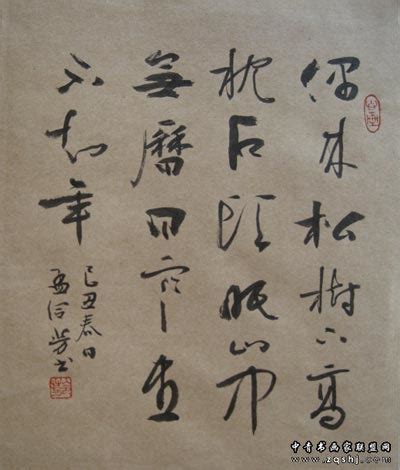 偶来松樹下高
枕石頭眠山中
無曆日寒尽
不知年
己丑春日
中青书画家联盟网
www.zqshj.com